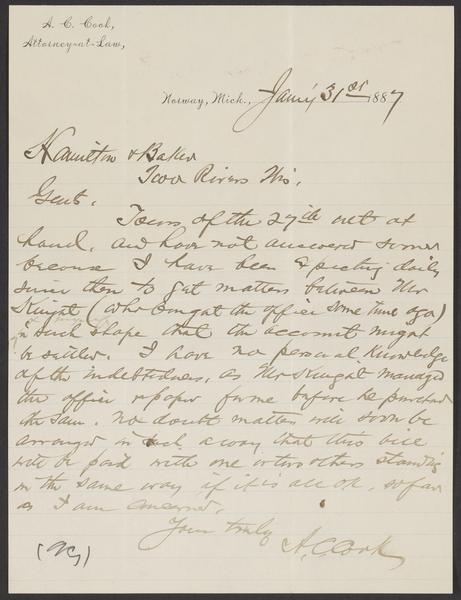 A. C. Cook,
Attorney-at-Law,
Norway, Mich., Jan'y 31st 1887
Hamilton & Baker
Two Rivers Wis.
Gents.
Yours of the 27th inst at
hand, and have not answered sooner
because I have been expecting daily
since then to get matters between Mr
Knight (who bought the office some time ago)
in such shape that the account might
be settled. I have no personal knowledge
of the indebtedness, as Mr Knight managed
the office & paper for me before he purchased
the same. No doubt matters will soon be
arranged in such a way that this bill
will be paid with one or two others standing
in the same way if it is all OK, so far
as I am concerned.
Yours truly
A. C. Cook